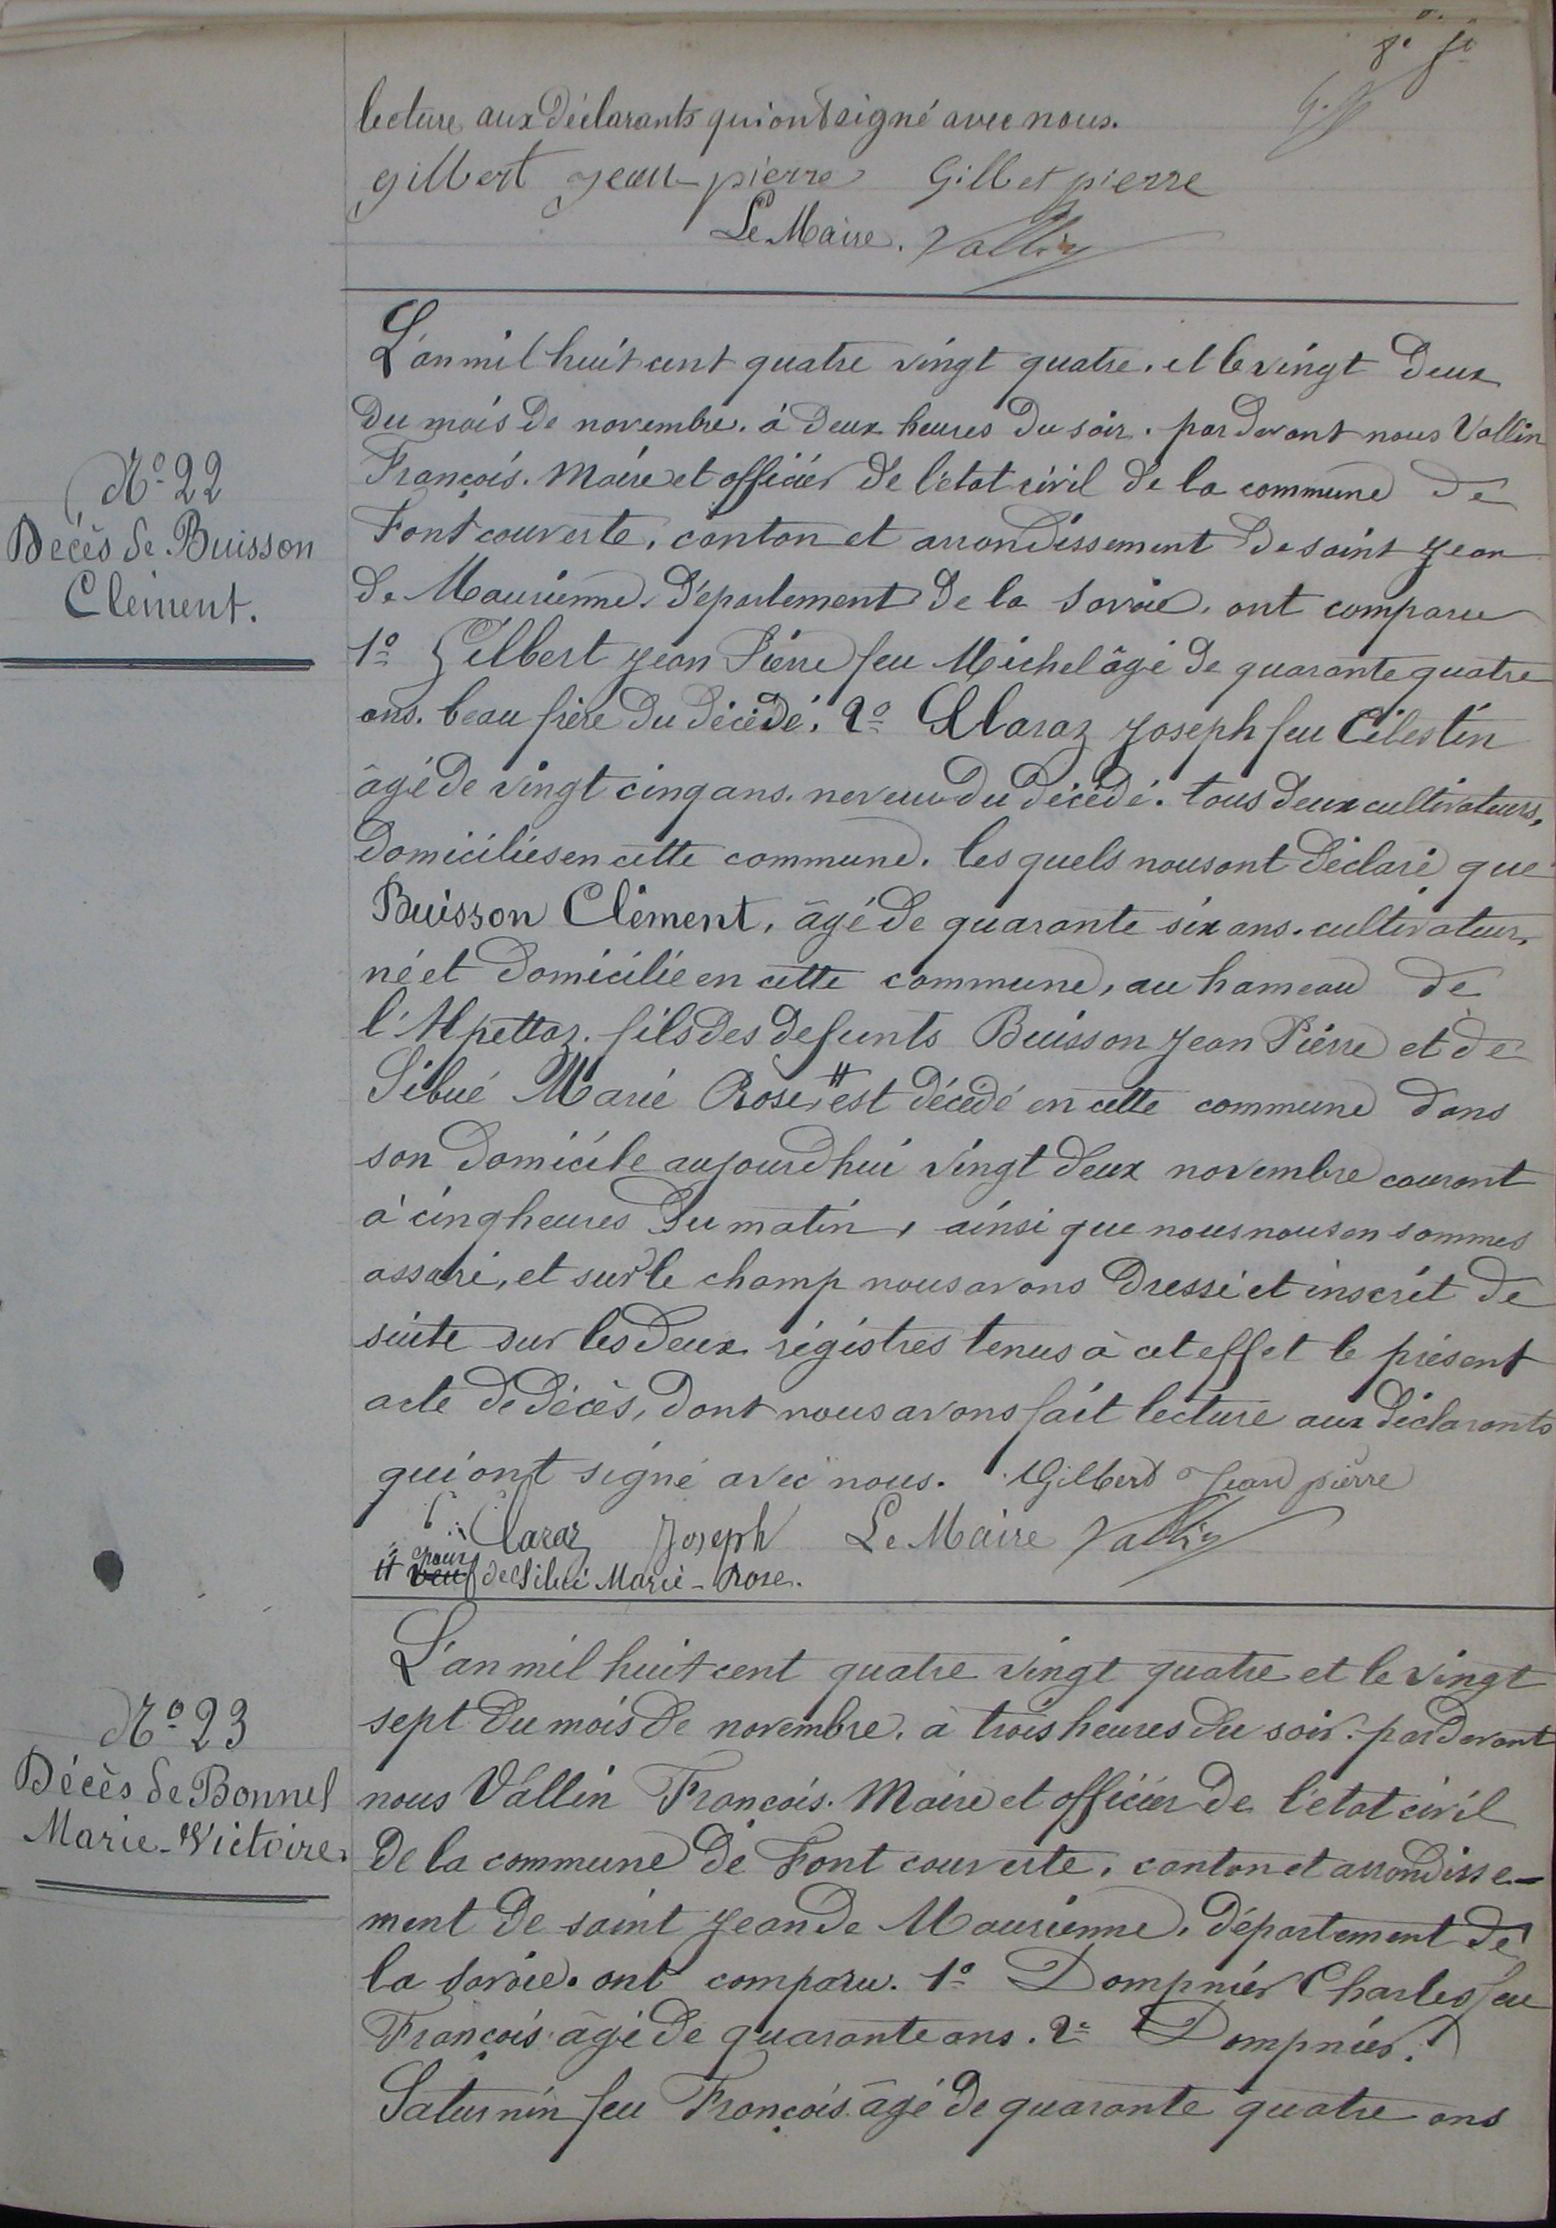 lecture aux déclarants qui ont signé avec nous.
gilbert jean pierre Gilbet pierre
Le Maire. Vallin
N° 22
Décès de Buisson
Clément.
L'an mil huit cent quatre vingt quatre. et le vingt deux
du mois de novembre. à deux heures du soir. par devant nous Vallin
François. Maire et officier de l'état civil de la commune de
Fontcouverte, canton et arrondissement de saint Jean
de Maurienne. département de la Savoie. ont comparu
1° Gilbert Jean Pierre feu Michel âgé de quarante quatre
ans. beau frère du décédé. 2° Claraz Joseph feu Célestin
âgé de vingt cinq ans. neveu du décédé. tous deux cultivateurs,
domiciliés en cette commune. les quels nous ont déclaré que
Buisson Clément, âgé de quarante six ans. cultivateur,
né et domicilié en cette commune, au hameau de
l'Alpettaz. fils des defunts Buisson Jean Pierre et de
Sibué Marie Rose, # est décédé en cette commune dans
son domicile aujourd'hui vingt deux novembre courant
à cinq heures du matin, ainsi que nous nous en sommes
assuré, et sur le champ nous avons dressé et inscrit de
suite sur les deux régistres tenus à cet effet le présent
acte de décès, dont nous avons fait lecture aux déclarants
qui ont signé avec nous. Gilbert Jean pierre
Claraz Joseph Le Maire Vallin
# veuf de Sibué Marie-Rose.
N° 23
Décès de Bonnel
Marie-Victoire.
L'an mil huit cent quatre vingt quatre et le vingt
sept du mois de novembre. à trois heures du soir. par devant
nous Vallin François. Maire et officier de l'état civil
de la commune de Fontcouverte. canton et arrondisse-
ment de saint Jean de Maurienne. département de
la Savoie. ont comparu. 1° Dompnier Charles feu
François âgé de quarante ans. 2° Dompnier.
Saturnin feu François âgé de quarante quatre ans